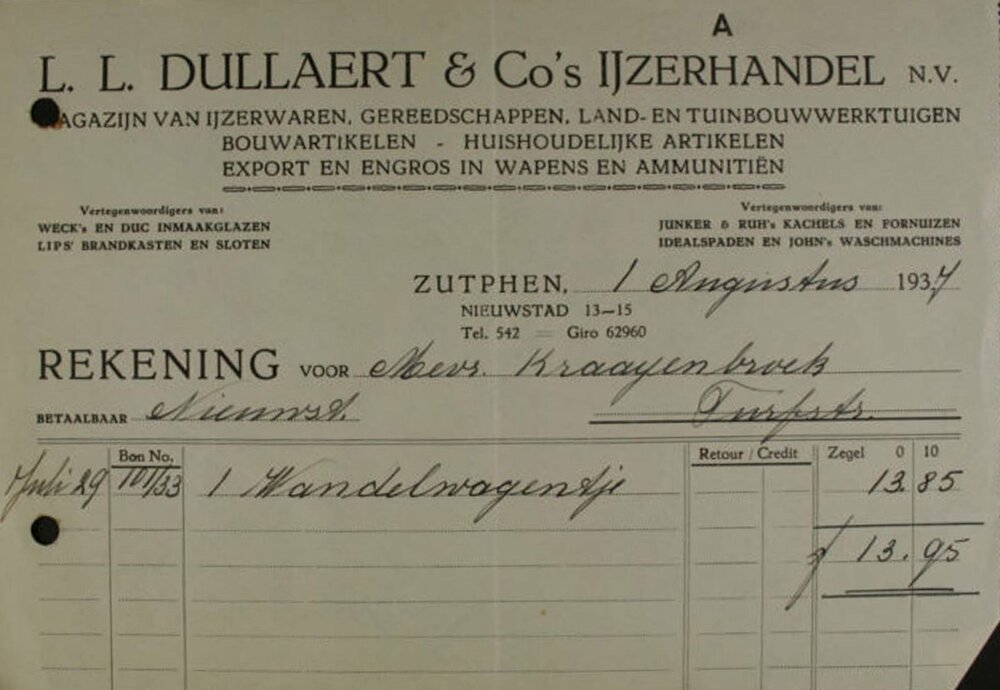 A
L. L. DULLAERT & Co's IJZERHANDEL N.V.
MAGAZIJN VAN IJZERWAREN, GEREEDSCHAPPEN, LAND- EN TUINBOUWWERKTUIGEN
BOUWARTIKELEN - HUISHOUDELIJKE ARTIKELEN
EXPORT EN ENGROS IN WAPENS EN AMMUNITIËN
Vertegenwoordigers van:
WECK's EN DUC INMAAKGLAZEN
LIPS' BRANDKASTEN EN SLOTEN
Vertegenwoordigers van:
JUNKER & RUH's KACHELS EN FORNUIZEN
IDEALSPADEN EN JOHN's WASCHMACHINES
ZUTPHEN, 1 Augustus 1937
NIEUWSTAD 13—15
Tel. 542 = Giro 62960
REKENING VOOR Mevr. Kraayenbroek
BETAALBAAR Nieuwst. Turfstr.
Bon No. Retour / Credit Zegel 0 10
Juli 29 101/33 1 Wandelwagentje 13.85
ƒ 13.95